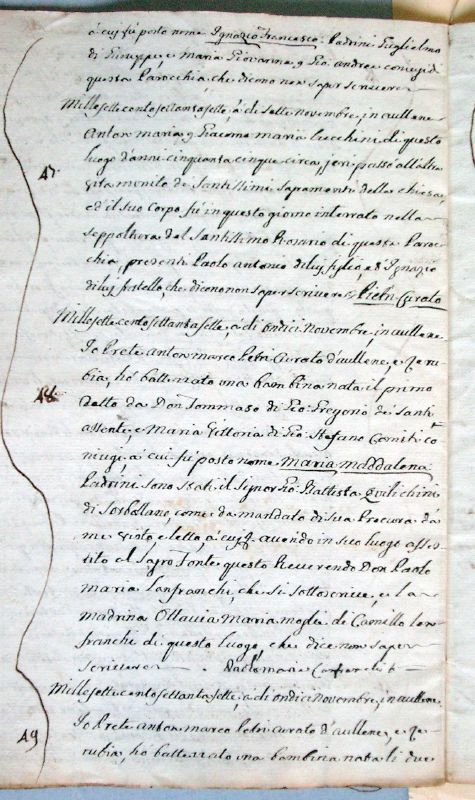 à cui fù posto nome Ignazio Francesco. Padrini Guglielmo
di Giuseppe, e Maria Giovanna q Gio: Andrea conjugi di
questa Parocchia, che dicono non saper scrivere
Millesettecentosettantasette, à dì sette Novembre, in aullene
47. Anton maria q Giacomo maria Lucchini, di questo
luogo d'anni cinquanta cinque circa, jeri passò all'altra
vita munito de Santissimi sagramenti della chiesa,
ed il suo corpo fù in questo giorno interrato nella
seppoltura del Santissimo Rosario di questa Paroc
chia, presenti Paolo Antonio di lui figlio, ed Ignazio
di lui fratello, che dicono non saper scrivere Pietri Curato
Millesettecentosettantasette, à dì ondici Novembre, in aullene
Io Prete Anton marco Petri Curato d'aullene, e Ze
48. bia, hò battezzato una bambina nata il primo
detto da Don Tommaso di Gio: Gregorio de Santi
assente, e Maria Vittoria di Gio: Stefano Comiti co
niugi, à cui fù posto nome Maria Maddalena.
Padrini sono stati il Signor Gio: Battista Quilichini
di Sorbollano, come da mandato di sua Procura dà
me visto e letto, à cui avendo in suo luogo assi
stito al Sagro Fonte questo Reverendo Don Paolo
Maria Lanfranchi, che si sottoscrive, e la
madrina Ottavia Maria moglie di Camillo Lan
franchi di questo luogo, che dice non saper
scrivere
Millesettecentosettantasette, à dì ondici Novembre, in aullene
49 Io Prete Anton marco Petri curato d'aullene, e Ze
rubia, hò battezzato una bambina nata li due